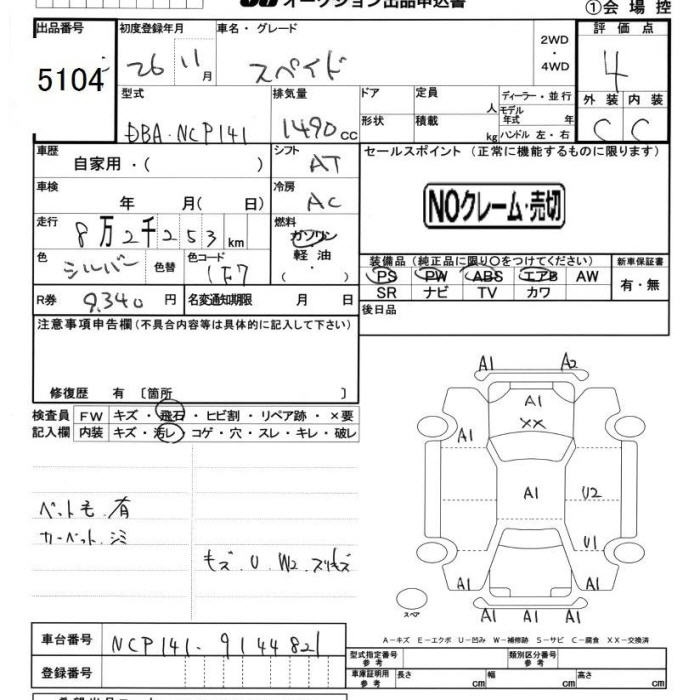 オークション出品申込書
①会場控
出品番号 初度登録年月 車名・グレード 評価点
5104 26 11月 スペイド 2WD・4WD 4
型式 排気量 ドア 定員 人 ディーラー・並行 外装 内装
DBA-NCP141 1490cc 形状 積載 kg モデル年式 年 ハンドル 左・右 C C
車歴 自家用・( ) シフト AT セールスポイント (正常に機能するものに限ります)
車検 年 月( 日) 冷房 AC NOクレーム・売切
走行 8万2千253km 燃料 ガソリン 軽油 ・ ( )
色 シルバー 色替 色コード 1F7
装備品(純正品に限り○をつけてください) 新車保証書
PS PW ABS エアB AW 有・無
SR ナビ TV カワ
R券 9,340円 名変通知期限 月 日
後日品
注意事項申告欄(不具合内容等は具体的に記入して下さい)
修復歴 有 〔箇所 〕
検査員 FW キズ・飛石・ヒビ割・リペア跡・×要
記入欄 内装 キズ・汚レ・コゲ・穴・スレ・キレ・破レ
A1 A2
A1
XX
A1
A1 U2
U1
A1 A1
A1 A1 A1
スペア
ペット毛 有
カーペット シミ
キズ・U・W2・スリキズ
A-キズ E-エクボ U-凹み W-補修跡 S-サビ C-腐食 XX-交換済
車台番号 NCP141-9144821
型式指定番号 参考 類別区分番号 参考
登録番号
車庫証明用 参考 長さ cm 幅 cm 高さ cm